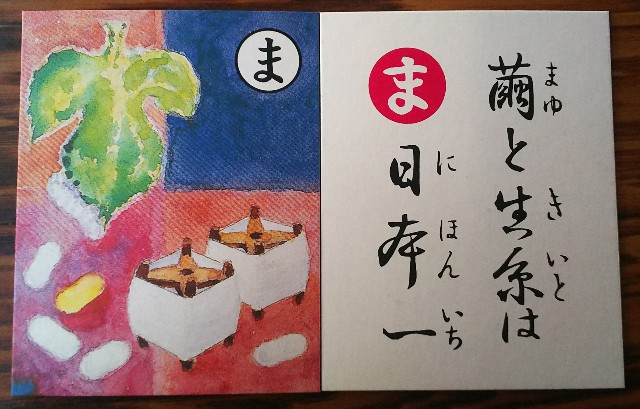 ま
繭と生糸は
まゆ
きいと
ま
日本一
にほんいち